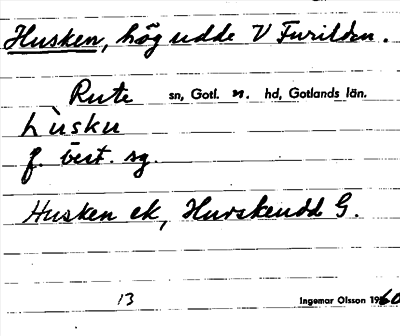 Husken, hög udde V Furilden.
Rute sn, Gotl. n. hd, Gotlands län.
hùsku
f. best. sg.
Husken ek, Hurskeudd G.
13 Ingemar Olsson 1960